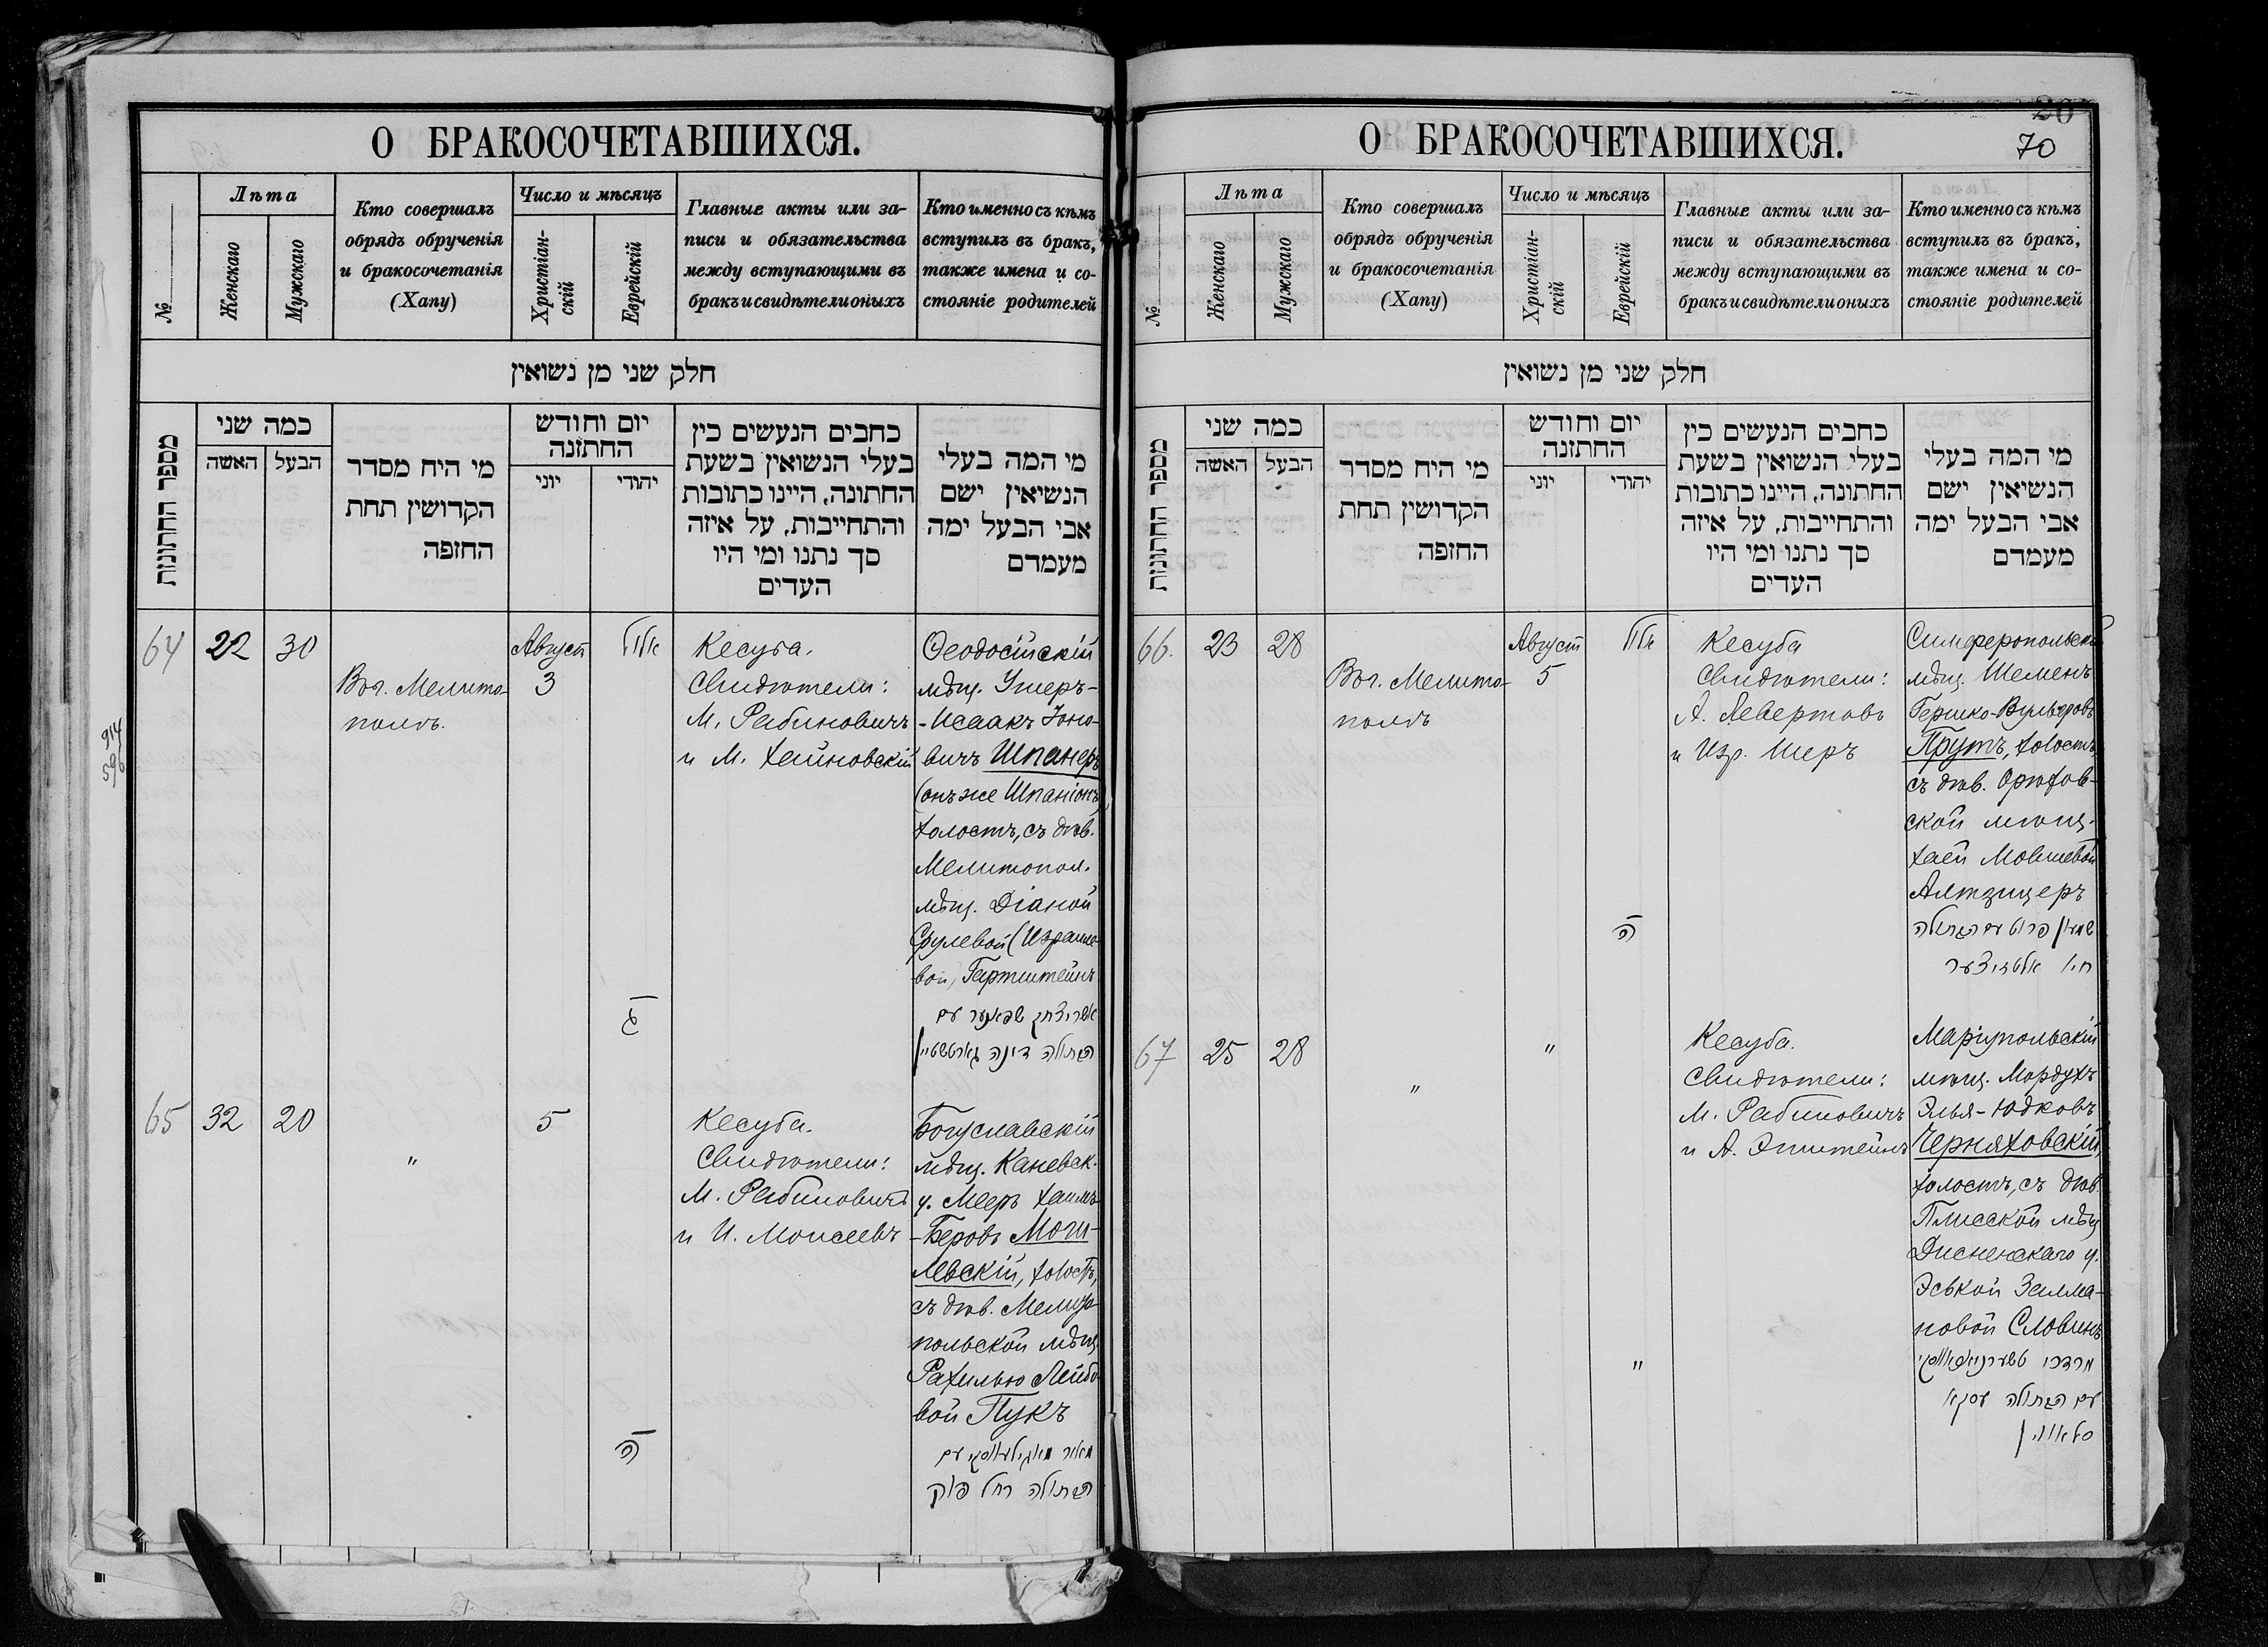 О БРАКОСОЧЕТАВШИХСЯ.
№
Лѣта
Женскаго
Мужскаго
Кто совершалъ
обрядъ обрученія
и бракосочетанія
(Хапу)
Число и мѣсяцъ
Христіан-
скій
Еврейскій
Главные акты или за-
писи и обязательства
между вступающими въ
бракъ и свидѣтели оныхъ
Кто именно съ кѣмъ
вступилъ въ бракъ,
также имена и со-
стояніе родителей
חלק שני מן נשואין
מספר החתונות
כמה שני
האשה
הבעל
מי היח מסדר
הקדושין תחת
החזפה
יום וחודש
החתזנה
יוני
יהודי
כחבים הנעשים כין
בעלי הנשואין בשעת
החתונה, היינו כתובות
והתחייבות, על איזה
סך נתנו ומי היו
העדים
מי המה בעלי
הנשיאין ישם
אבי הבעל ימה
מעמדם
64
22
30
Вог. Мелито-
поль.
Август
3
אלול
ג
Кесуба.
Свидѣтели:
М. Рабиновичъ
и М. Хайновскій
Ѳеодосійскій
мѣщ. Ушеръ-
-Исаакъ Іоно-
вичъ Шпанеръ
(онъ же Шпаніонъ)
холостъ, съ дѣв.
Мелитопол.
мѣщ. Діаной
Срулевой (Израиле-
вой) Гартштейнъ
אשר יצחק שפאנער עם
הבתולה דינה גארטשטיין
65
32
20
"
5
ה
Кесуба.
Свидѣтели:
М. Рабиновичъ
и И. Моисеевъ
Богуславскій
мѣщ. Каневск.
у. Мееръ Хаимъ-
-Беровъ Моги-
левскій, холостъ,
съ дѣв. Мелито-
польской мѣщ.
Рахилью Лейбо-
вой Пукъ
מאיר מאגילעווסקי עם
הבתולה רחל פוק
914
596
О БРАКОСОЧЕТАВШИХСЯ.
20
70
№
Лѣта
Женскаго
Мужскаго
Кто совершалъ
обрядъ обрученія
и бракосочетанія
(Хапу)
Число и мѣсяцъ
Христіан-
скій
Еврейскій
Главные акты или за-
писи и обязательства
между вступающими въ
бракъ и свидѣтели оныхъ
Кто именно съ кѣмъ
вступилъ въ бракъ,
также имена и со-
стояніе родителей
חלק שני מן נשואין
מספר החתונות
כמה שני
האשה
הבעל
מי היח מסדר
הקדושין תחת
החזפה
יום וחודש
החתזנה
יוני
יהודי
כחבים הנעשים כין
בעלי הנשואין בשעת
החתונה, היינו כתובות
והתחייבות, על איזה
סך נתנו ומי היו
העדים
מי המה בעלי
הנשיאין ישם
אבי הבעל ימה
מעמדם
66.
23
28
Вог. Мелито-
поль
Август
5
אלול
ה
Кесуба
Свидѣтели:
А. Левертовъ
и Изр. Шеръ
Симферопольскій
мѣщ. Шеменъ
Гершко-Вульфовъ
Прутъ, холостъ,
съ дѣв. Орѣхов-
ской мѣщ.
Хаей Мовшевой
Алтзицеръ
שמעון פרוט עם הבתולה
חיי אלטזיצער
67
25
28
"
"
"
Кесуба.
Свидѣтели:
М. Рабиновичъ
и А. Эпштейнъ
Маріупольскій
мѣщ. Мордухъ
Элья-Юдковъ
Черняховскій,
холостъ, съ дѣв.
Плисской мѣщ.
Дисненскаго у.
Эськой Залма-
новой Словинъ
מרדכי טשערניאחאווסקי
עם הבתולה עסקא
סלאווין